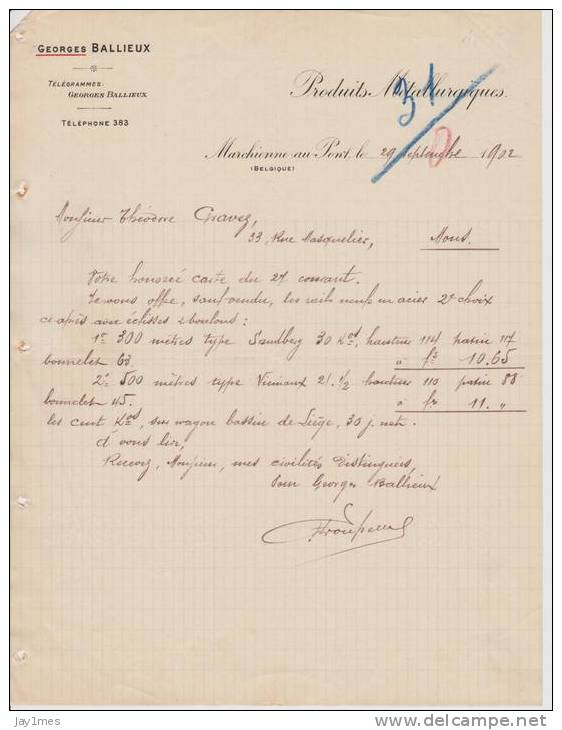 GEORGES BALLIEUX
TÉLÉGRAMMES:
GEORGES BALLIEUX
TÉLÉPHONE 383
Produits Métallurgiques.
31
0
Marchienne-au-Pont, le 29 septembre 1902
(BELGIQUE)
Monsieur Théodore Gravez,
33, Rue Masquelier, Mons.
Votre honorée carte du 27 courant.
Je vous offre, sauf vendu, les rails neufs en acier 2e choix
ci-après avec éclisses & boulons:
1º 300 mètres type Sandberg 30 Kos, hauteur 114 patin 117
bourrelet 63. à frs 10.65
2º 500 mètres type Vicinaux 21.1/2 hauteur 110 patin 88
bourrelet 45. à frs 11. "
les cent Kos, sur wagon bassin de Liège, 30 j. net.
à vous lire,
Recevez, Monsieur, mes civilités distinguées,
pour Georges Ballieux
jay1mes
delcampe.net